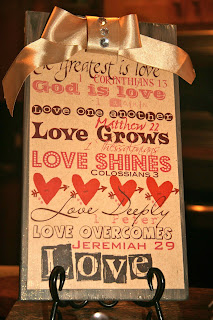 greatest is love
1 CORINTHIANS 13
God is love
LOVE ONE ANOTHER
Matthew 22
LOVE GROWS
1 Thessalonians
LOVE SHINES
COLOSSIANS 3
Love Deeply
1 Peter
LOVE OVERCOMES
JEREMIAH 29
Love